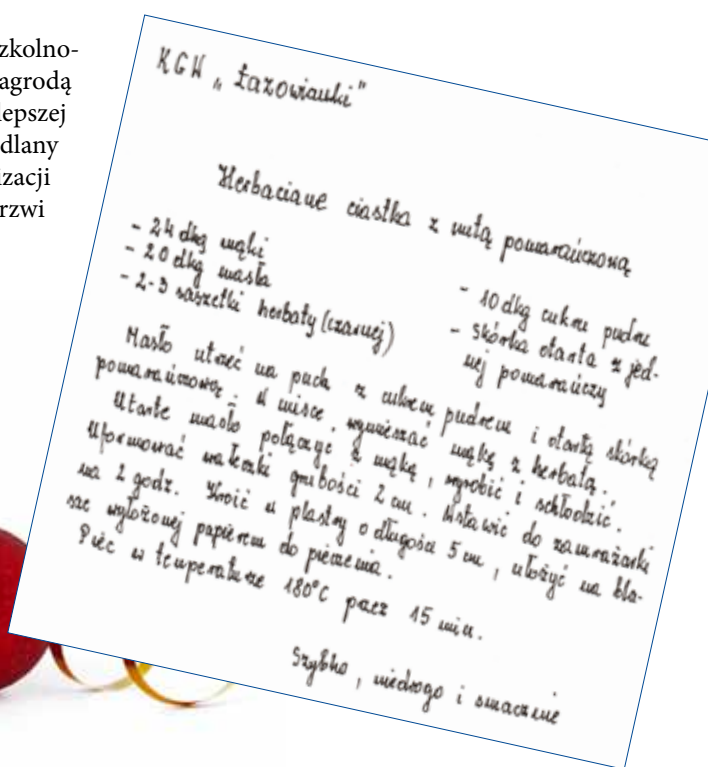 zkolno-
agrodą
lepszej
dlany
izacji
rzwi
KGW „Łazowianki”
Herbaciane ciastka z nutą pomarańczową
- 24 dkg mąki
- 20 dkg masła
- 2-3 saszetki herbaty (czarnej)
- 10 dkg cukru pudru
- skórka otarta z jed-
nej pomarańczy
Masło utrzeć na puch z cukrem pudrem i otartą skórką
pomarańczową. W misce wymieszać mąkę z herbatą.
Utarte masło połączyć z mąką, wyrobić i schłodzić.
Uformować wałeczki grubości 2 cm. Wstawić do zamrażarki
na 2 godz. Kroić w plastry o długości 5 cm, ułożyć na bla-
sze wyłożonej papierem do pieczenia.
Piec w temperaturze 180°C przez 15 min.
Szybko, niedrogo i smacznie